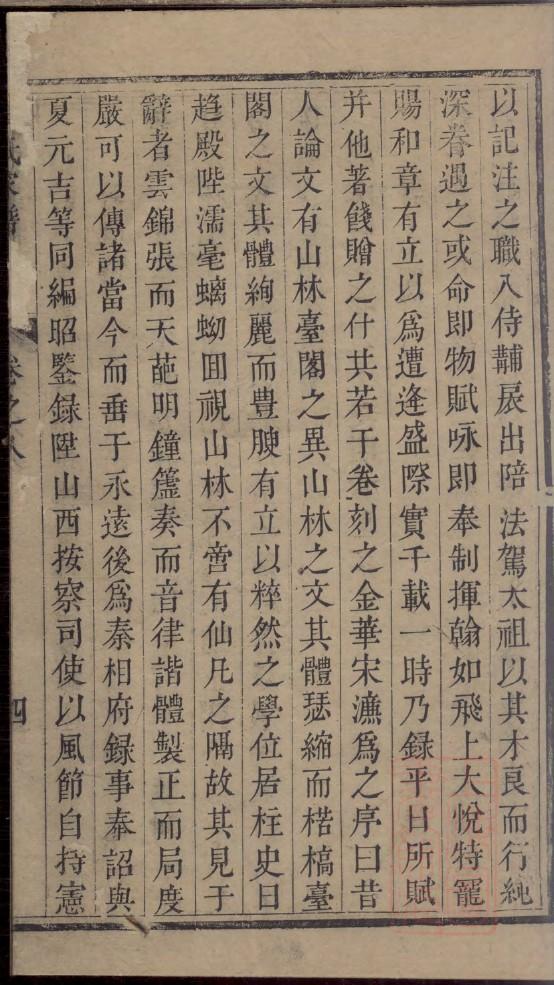 以記注之職入侍黼扆出陪 法駕太祖以其才良而行純
深眷遇之或命即物賦咏即 奉制揮翰如飛上大悅特寵
賜和章有立以爲遭逢盛際實千載一時乃録平日所賦
并他著餞贈之什共若干卷刻之金華宋濂爲之序曰昔
人論文有山林臺閣之異山林之文其體瑟縮而楛槁臺
閣之文其體絢麗而豊腴有立以粹然之學位居柱史日
趋殿陛濡毫螭蚴囬視山林不啻有仙凡之隔故其見于
辭者雲錦張而天葩明鐘簴奏而音律諧體製正而局度
嚴可以傳諸當今而垂于永遠後爲秦相府録事奉詔與
夏元吉等同編昭鍳録陞山西按察司使以風節自持憲
氏家譜 卷之八 四